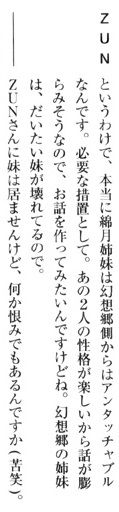 ZUN
というわけで、本当に綿月姉妹は幻想郷側からはアンタッチャブル
なんです。必要な措置として。あの2人の性格が楽しいから話が膨
らみそうなので、お話を作ってみたいんですけどね。幻想郷の姉妹
は、だいたい妹が壊れてるので。
――ZUNさんに妹は居ませんけど、何か恨みでもあるんですか(苦笑)。